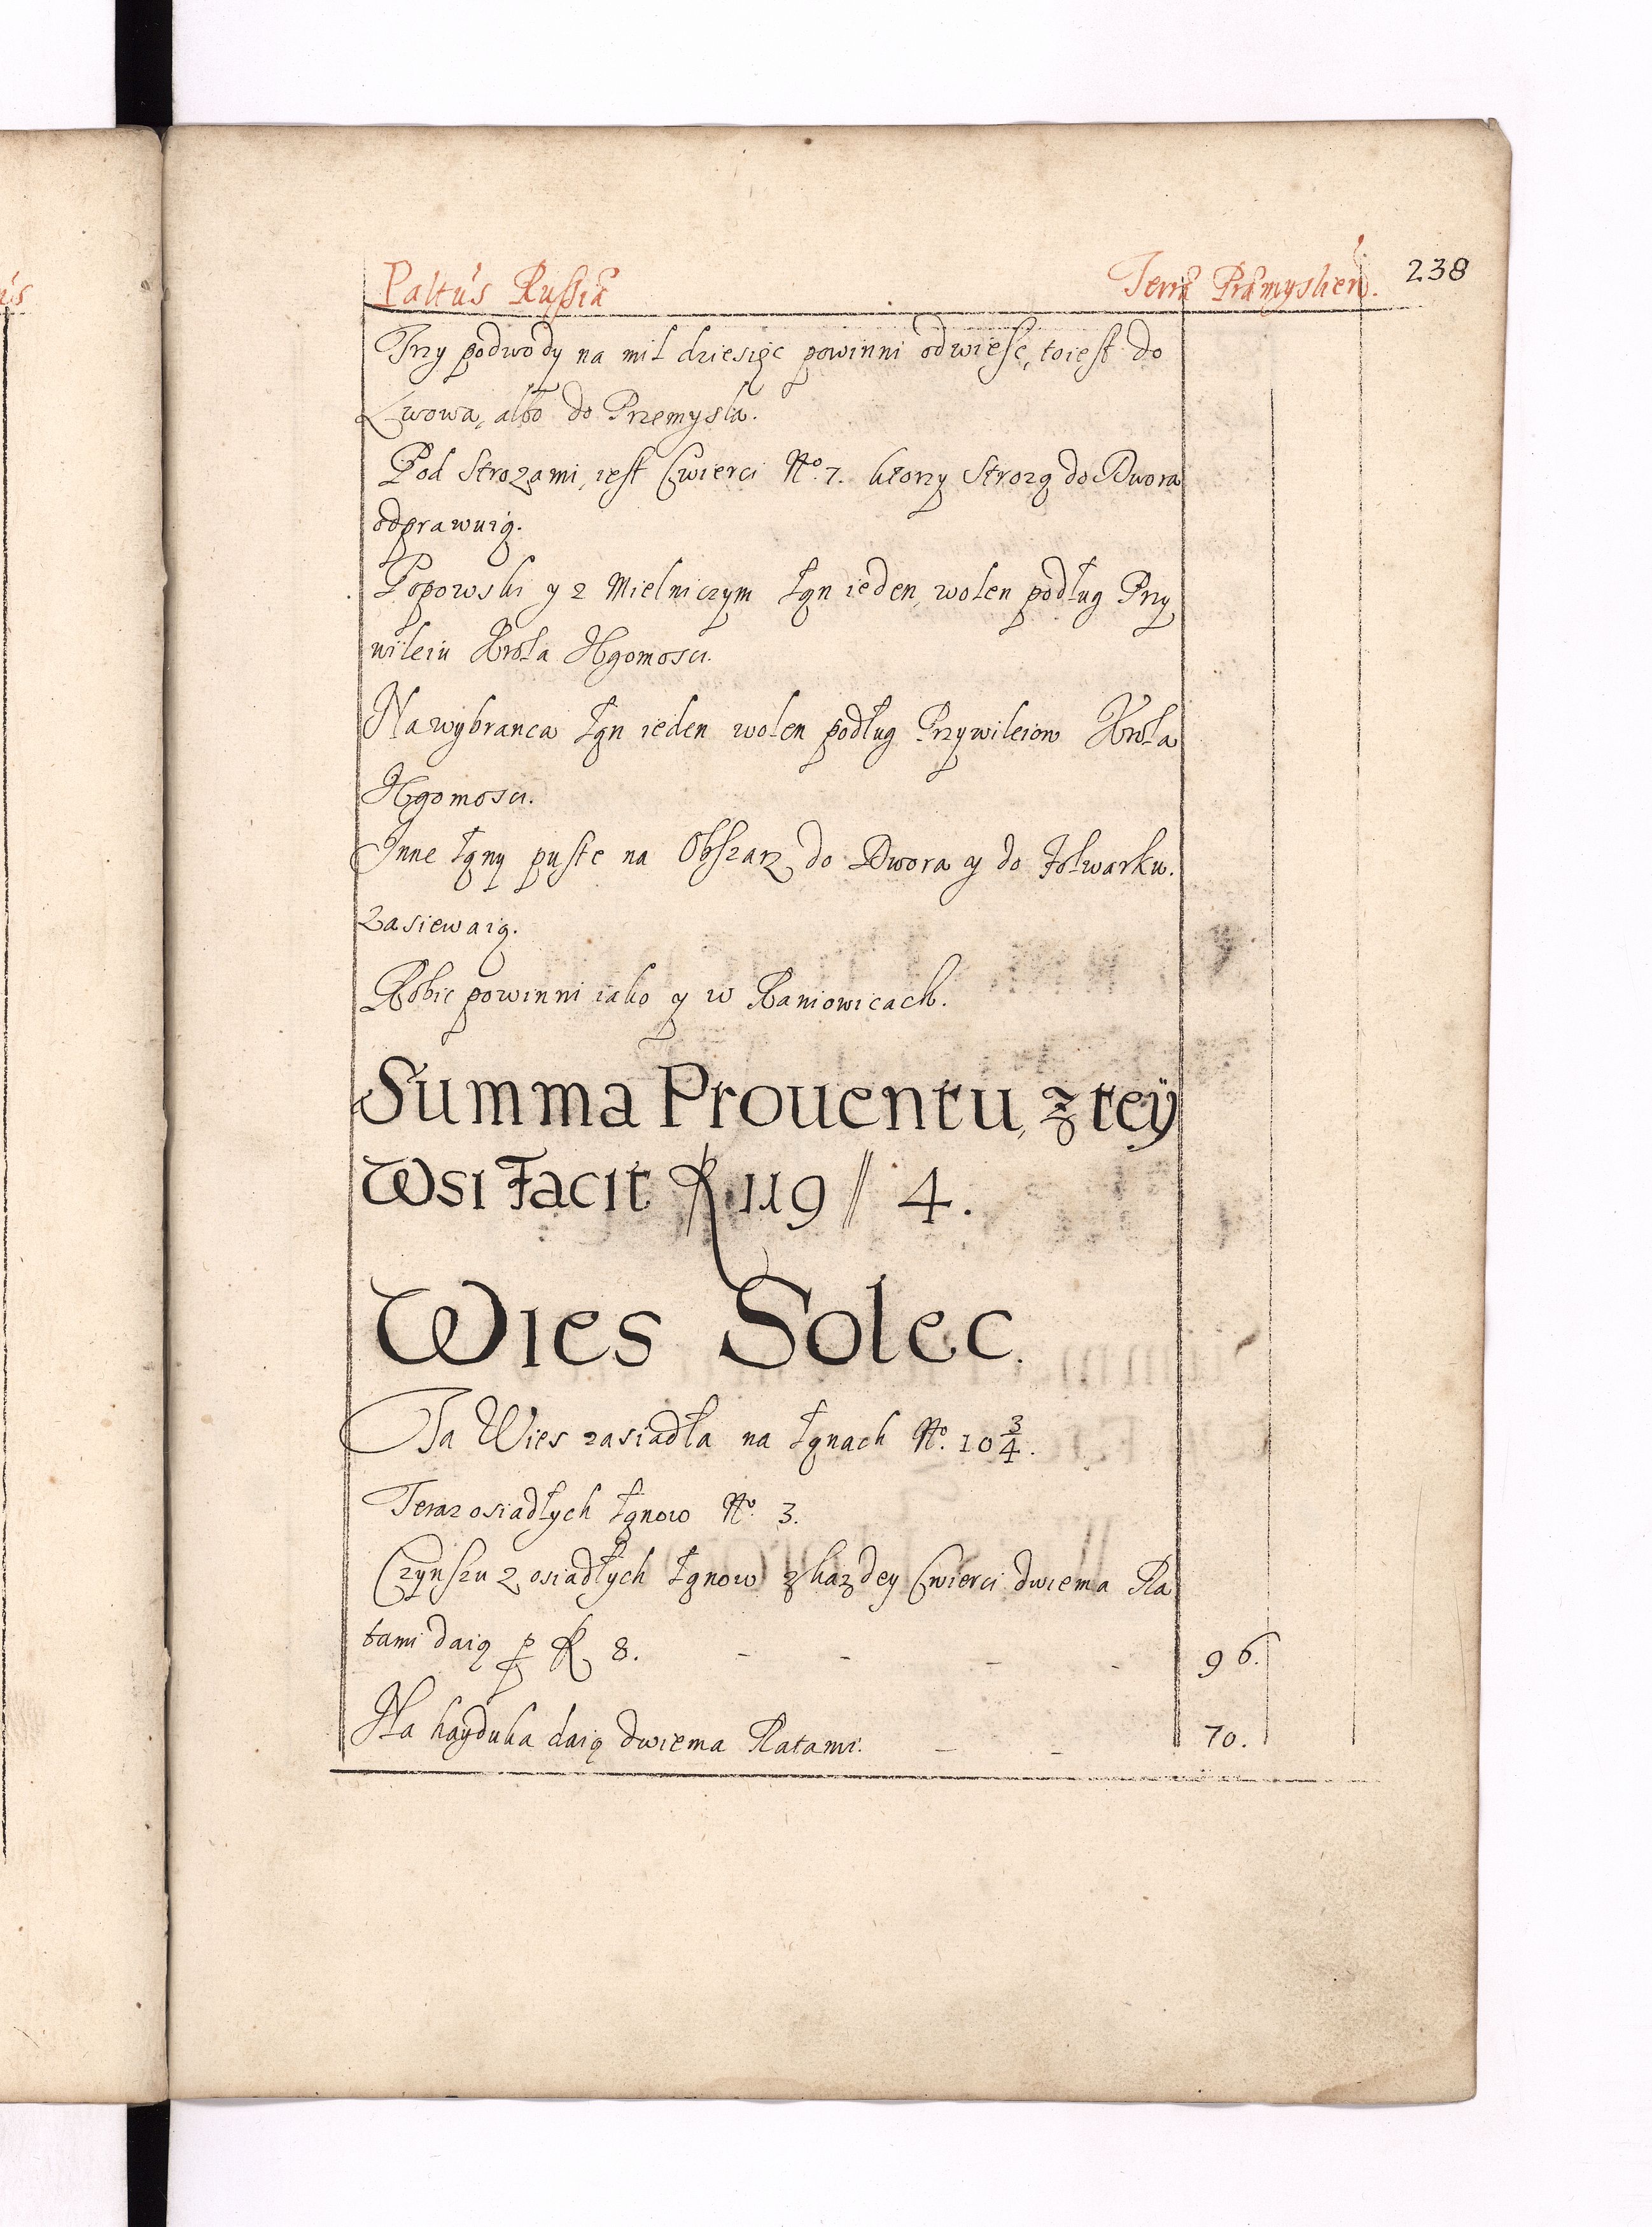 Paltus Russiæ Terræ Præmyslien. 238
Trzy podwody na mil dziesięc powinni odwiesc, toiest do
Lwowa, albo do Przemysla.
Pod Strozami, iest Cwierci No. 7. ktorzy Strozą do Dwora
odprawuią.
Popowski y z Mielniczym Łąn ieden, wolen podług Przy
wileiu Krola JKgomosci.
Na wybranca Łąn ieden wolen podług Przywileiow Krola
JKgomosci.
Inne Łąny puste na Obszar, do Dwora y do Folwarku.
Zasiewaią.
Robic powinni iako y w Raniowicach.
Summa Prouentu, z teÿ
Wsi Facit fl 119 // 4.
Wies Solec.
Ta Wies zasiadła na Łąnach No. 10 3/4.
Teraz osiadłych Łąnow No. 3.
Czynszu z osiadłych Łąnow z każdey Cwierci dwiema Ra
tami daią p fl 8. - - - - 96.
Na hayduka daią dwiema Ratami. - - 70.